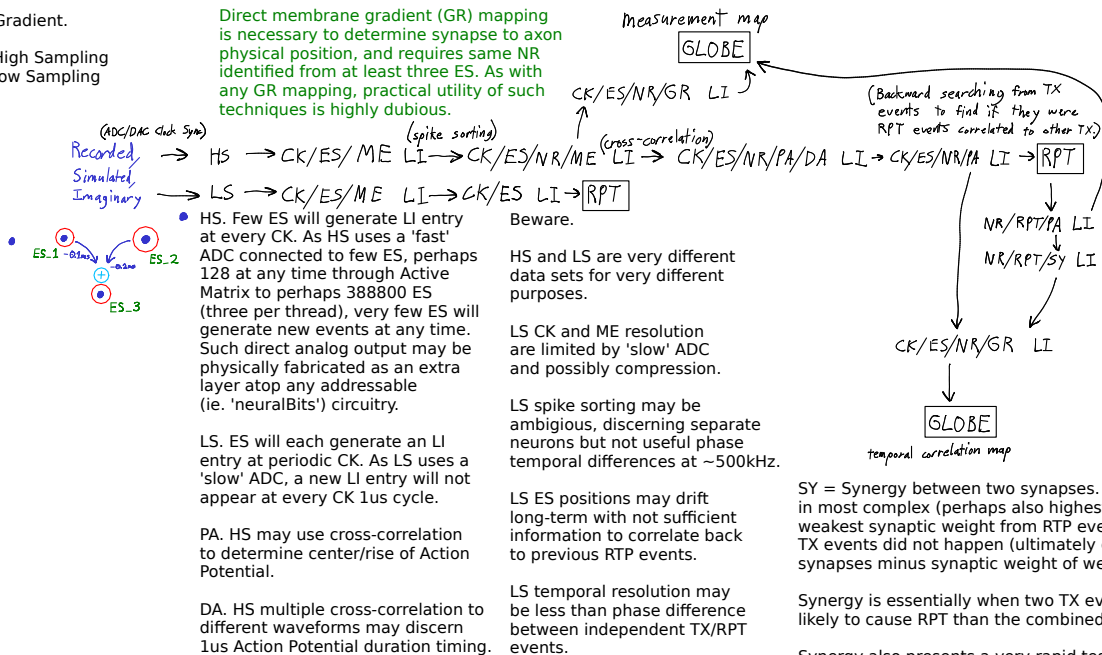 Gradient.
High Sampling
Low Sampling
Direct membrane gradient (GR) mapping
is necessary to determine synapse to axon
physical position, and requires same NR
identified from at least three ES. As with
any GR mapping, practical utility of such
techniques is highly dubious.
measurement map
GLOBE
CK/ES/NR/GR LI
(Backward searching from TX
events to find if they were
RPT events correlated to other TX.)
(ADC/DAC Clock Sync)
(spike sorting)
(cross-correlation)
Recorded,
Simulated,
Imaginary
HS → CK/ES/ME LI → CK/ES/NR/ME LI → CK/ES/NR/PA/DA LI → CK/ES/NR/PA LI → RPT
LS → CK/ES/ME LI → CK/ES LI → RPT
NR/RPT/PA LI
NR/RPT/SY LI
CK/ES/NR/GR LI
GLOBE
temporal correlation map
ES_1
-0.1ms
-0.2ms
ES_2
ES_3
HS. Few ES will generate LI entry
at every CK. As HS uses a 'fast'
ADC connected to few ES, perhaps
128 at any time through Active
Matrix to perhaps 388800 ES
(three per thread), very few ES will
generate new events at any time.
Such direct analog output may be
physically fabricated as an extra
layer atop any addressable
(ie. 'neuralBits') circuitry.
LS. ES will each generate an LI
entry at periodic CK. As LS uses a
'slow' ADC, a new LI entry will not
appear at every CK 1us cycle.
PA. HS may use cross-correlation
to determine center/rise of Action
Potential.
DA. HS multiple cross-correlation to
different waveforms may discern
1us Action Potential duration timing.
Beware.
HS and LS are very different
data sets for very different
purposes.
LS CK and ME resolution
are limited by 'slow' ADC
and possibly compression.
LS spike sorting may be
ambigious, discerning separate
neurons but not useful phase
temporal differences at ~500kHz.
LS ES positions may drift
long-term with not sufficient
information to correlate back
to previous RTP events.
LS temporal resolution may
be less than phase difference
between independent TX/RPT
events.
SY = Synergy between two synapses.
in most complex (perhaps also highes
weakest synaptic weight from RTP eve
TX events did not happen (ultimately
synapses minus synaptic weight of we
Synergy is essentially when two TX ev
likely to cause RPT than the combined